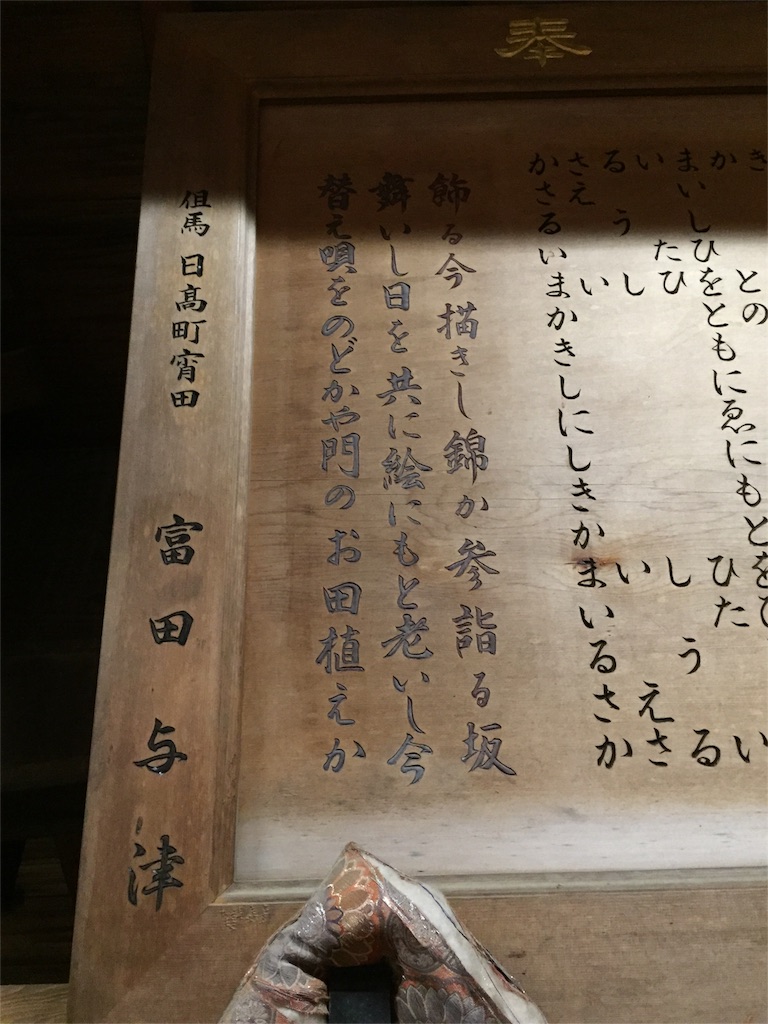 奉
き
か との
まいしひをともにゑにもとを
い たひ ひた い
る うし し う る
さえ い い えさ
かさるいまかきしにしきかまいるさか
飾る今描きし錦か参詣る坂
舞いし日を共に絵にもと老いし今
替え唄をのどかや門のお田植えか
但馬 日髙町宵田 富田与津